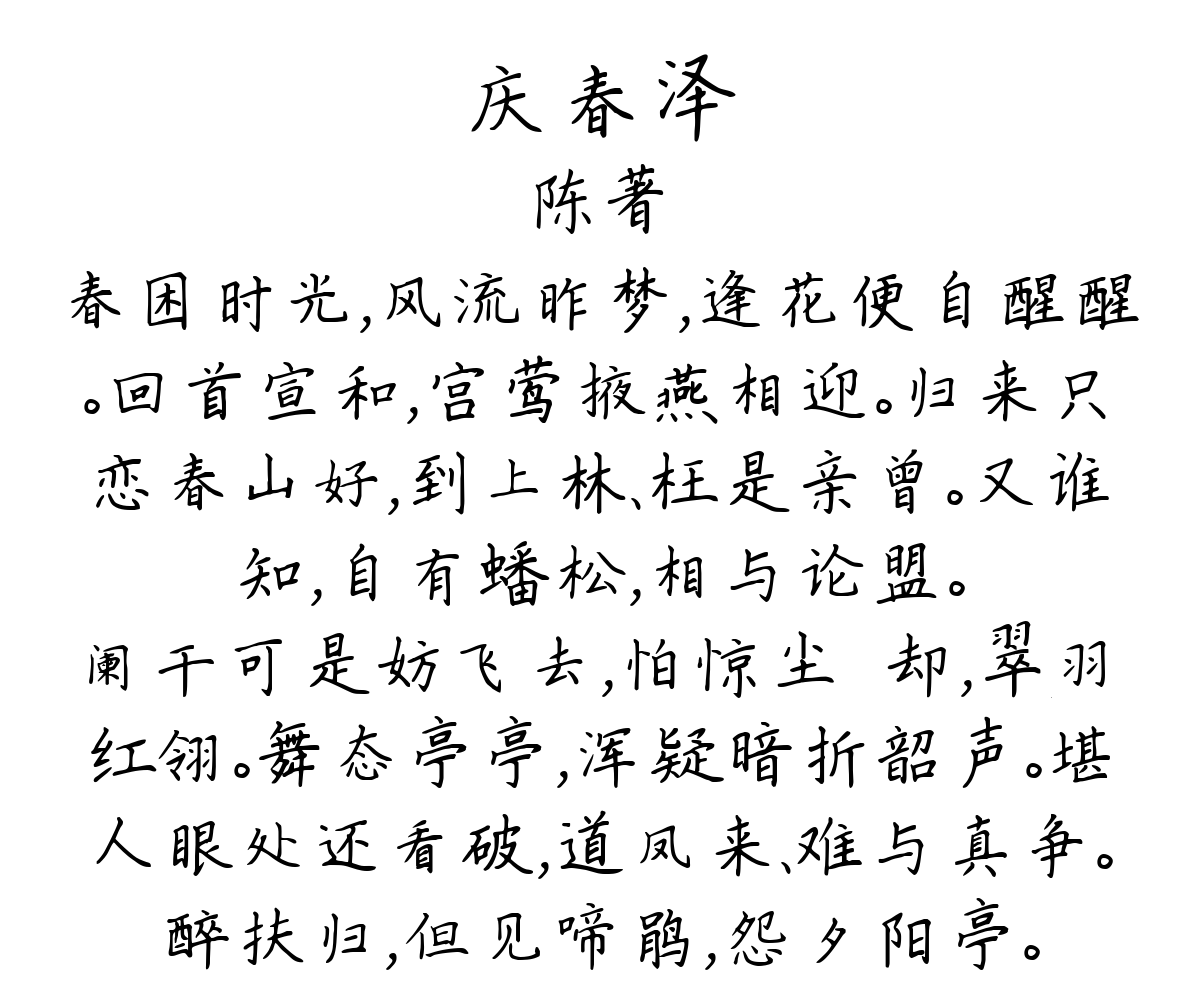 庆春泽
陈著
春困时光,风流昨梦,逢花便自醒醒
。回首宣和,宫莺掖燕相迎。归来只
恋春山好,到上林、枉是亲曾。又谁
知,自有蟠松,相与论盟。
阑干可是妨飞去,怕惊尘 却,翠羽
红翎。舞态亭亭,浑疑暗折韶声。堪
人眼处还看破,道凤来、难与真争。
醉扶归,但见啼鹃,怨夕阳亭。